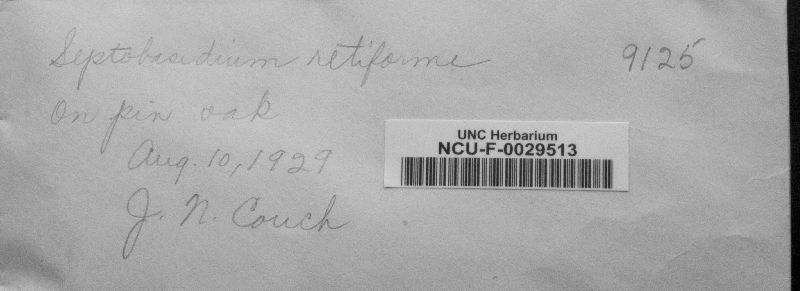 Septobasidium retiforme 9125
On pin oak
Aug. 10, 1929
J. N. Couch
UNC Herbarium
NCU-F-0029513